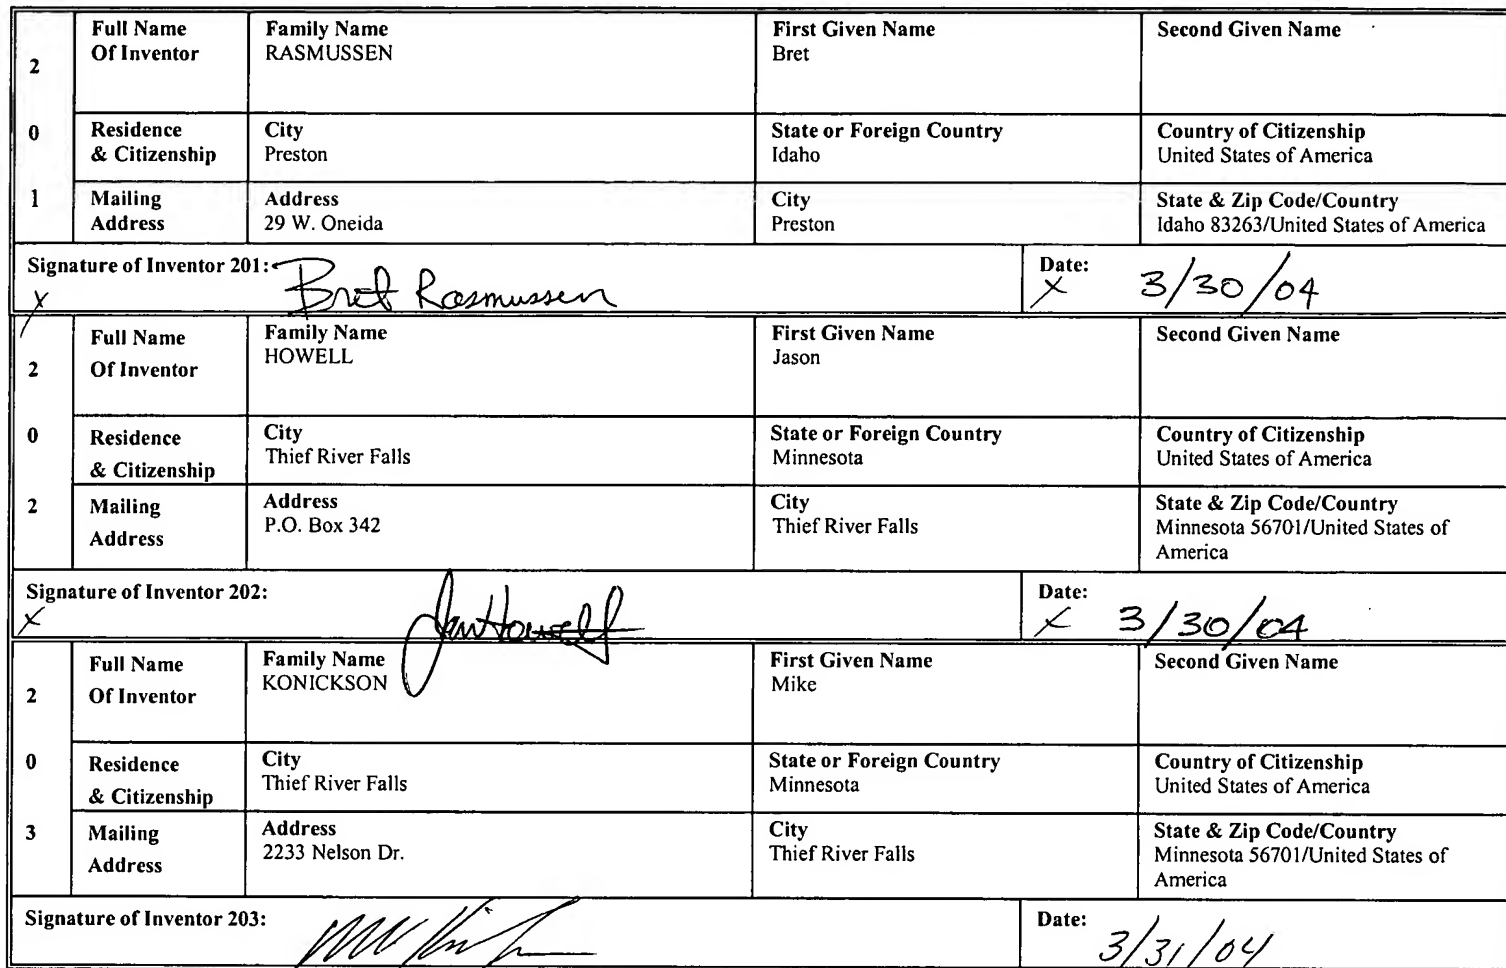 2 0 1
Full Name Of Inventor
Family Name
RASMUSSEN
First Given Name
Bret
Second Given Name
Residence & Citizenship
City
Preston
State or Foreign Country
Idaho
Country of Citizenship
United States of America
Mailing Address
Address
29 W. Oneida
City
Preston
State & Zip Code/Country
Idaho 83263/United States of America
Signature of Inventor 201:
X
Bret Rasmussen
Date:
X 3/30/04
2 0 2
Full Name
Of Inventor
Family Name
HOWELL
First Given Name
Jason
Second Given Name
Residence
& Citizenship
City
Thief River Falls
State or Foreign Country
Minnesota
Country of Citizenship
United States of America
Mailing
Address
Address
P.O. Box 342
City
Thief River Falls
State & Zip Code/Country
Minnesota 56701/United States of
America
Signature of Inventor 202:
X
Date:
X 3/30/04
2 0 3
Full Name
Of Inventor
Family Name
KONICKSON
First Given Name
Mike
Second Given Name
Residence
& Citizenship
City
Thief River Falls
State or Foreign Country
Minnesota
Country of Citizenship
United States of America
Mailing
Address
Address
2233 Nelson Dr.
City
Thief River Falls
State & Zip Code/Country
Minnesota 56701/United States of
America
Signature of Inventor 203:
Date:
3/31/04